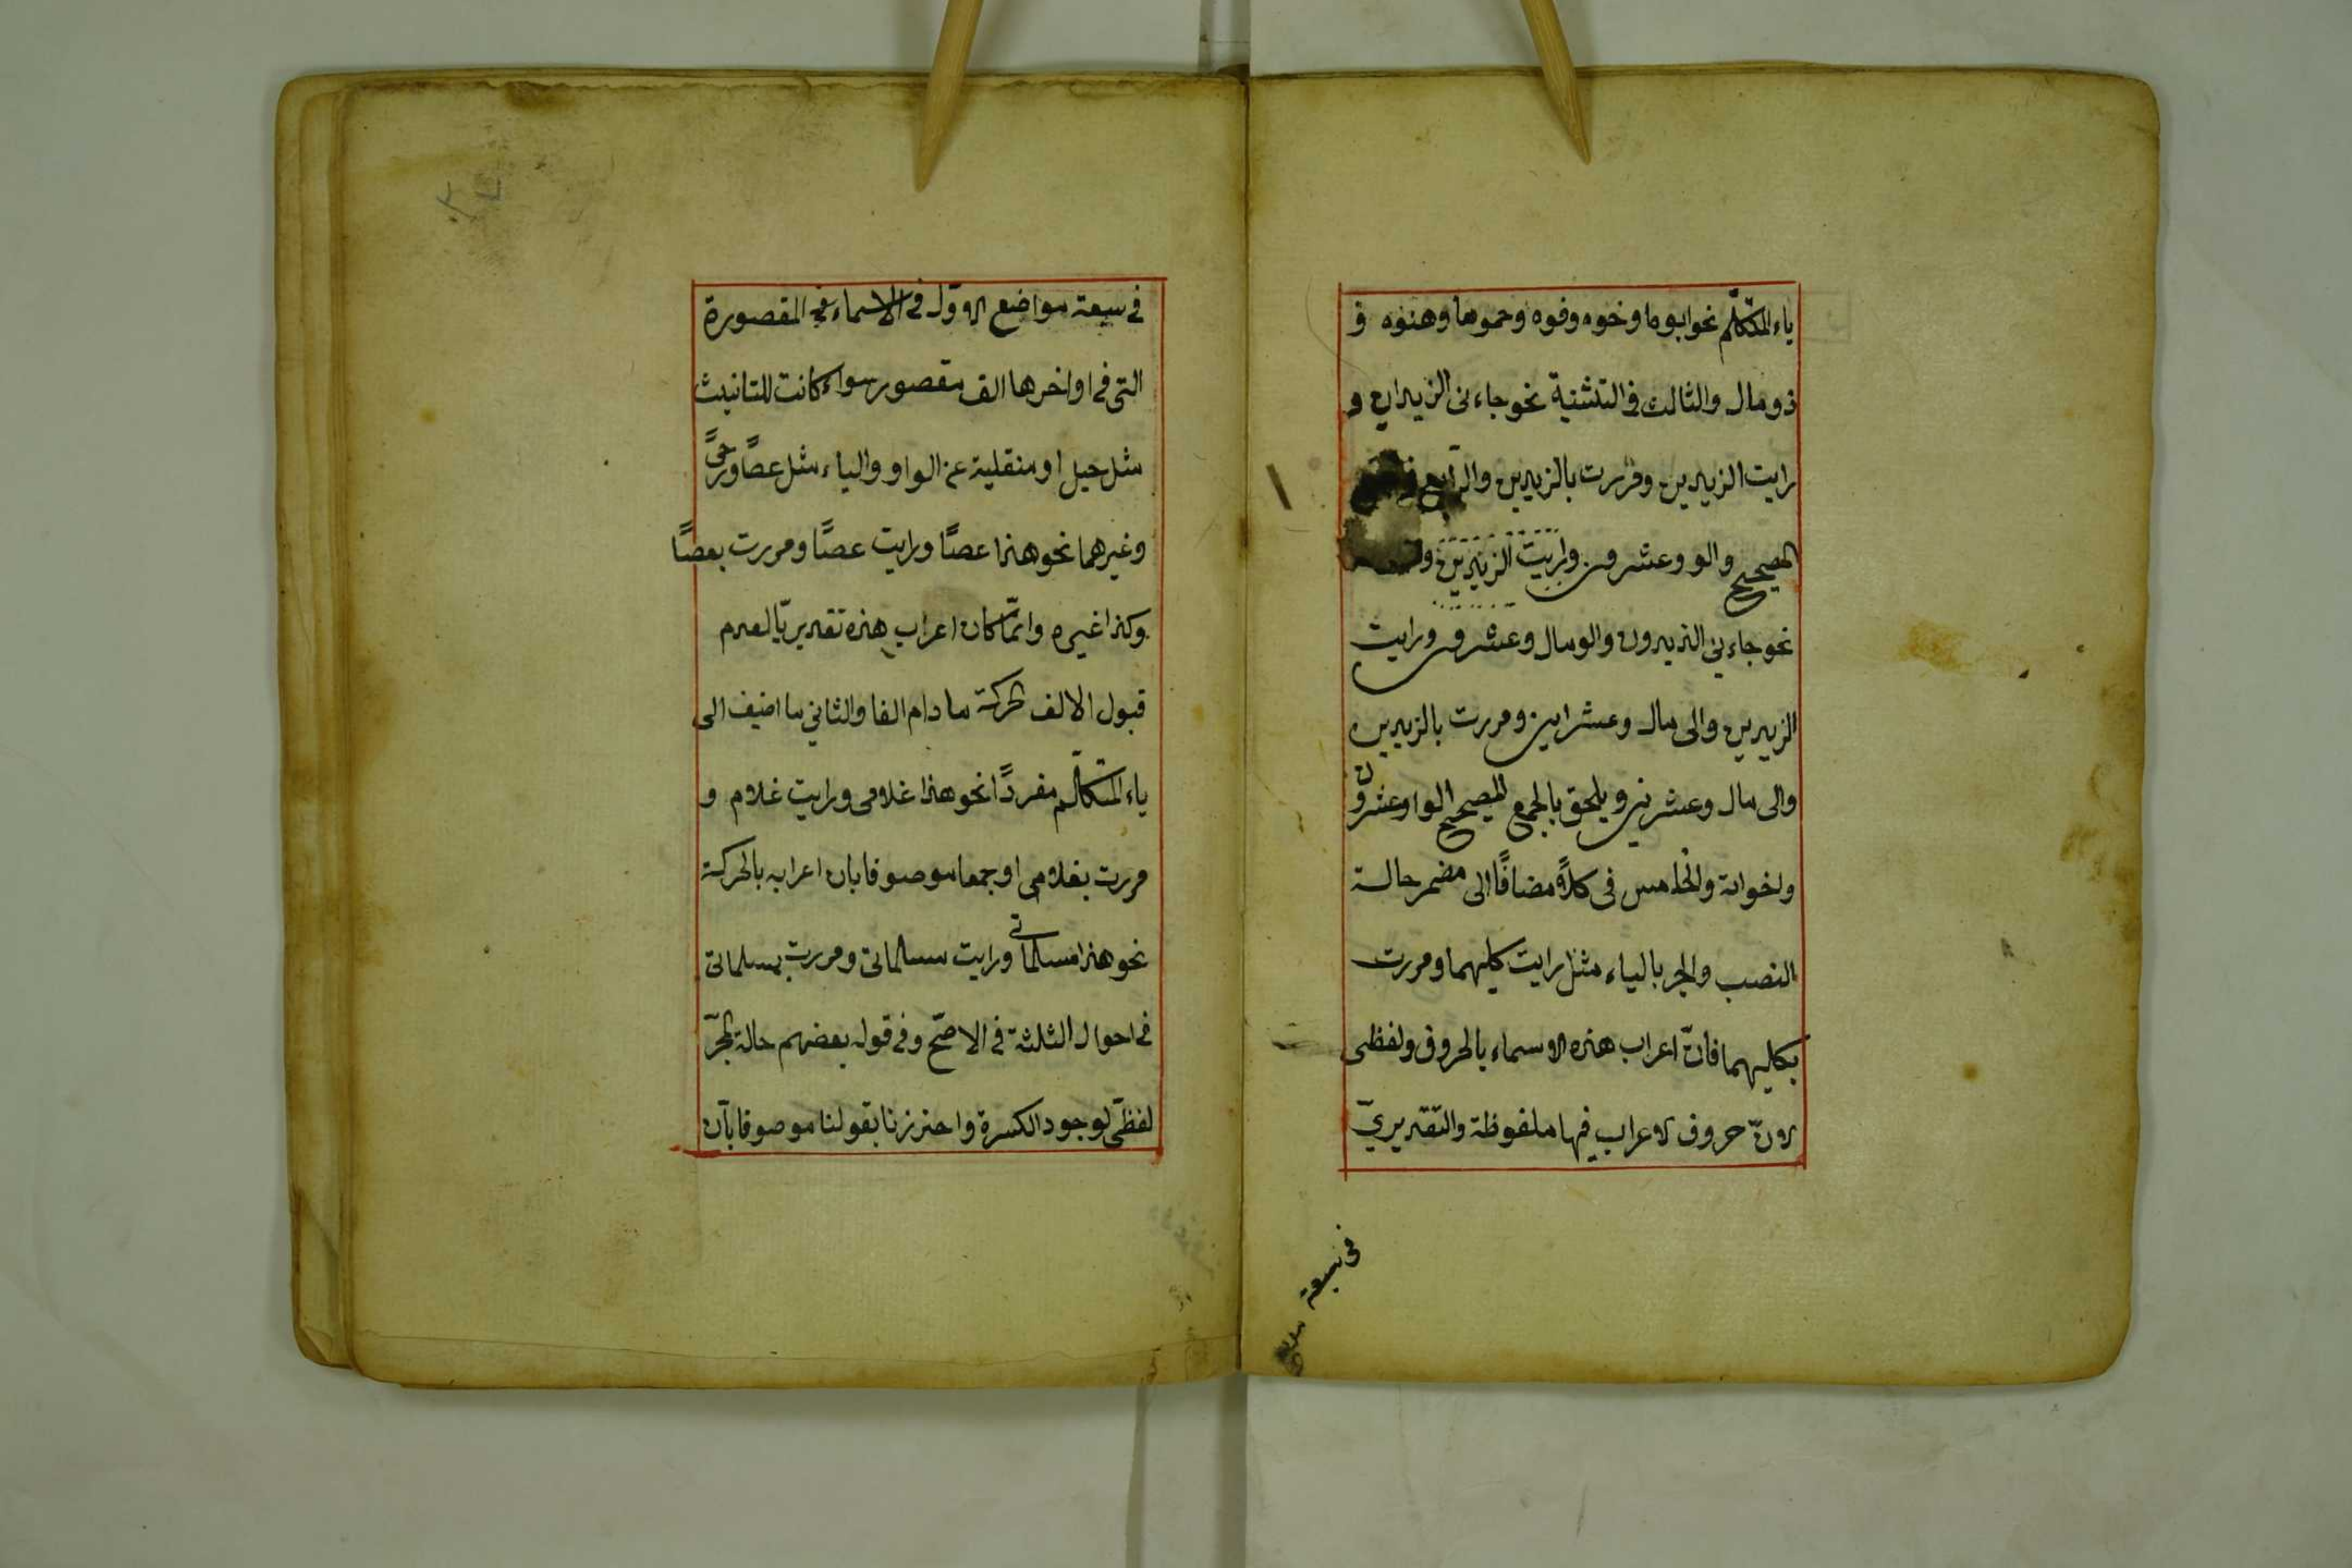 ياء المتكلّم نحو ابوها وخوه وفوه وحموها وهنوه و
ذو مال والثالث فى التثنية نحو جاءنى الزيدان و
رايت الزيدين ومررت بالزيدين والرّابع
الصحيح والو وعشرون ورايت الزيدين
نحو جاءنى الزيدون والو مال وعشرون ورايت
الزيدين والى مال وعشرين ومررت بالزيدين
والى مال وعشرين ويلحق بالجمع الصحيح الوا وعشرون
واخواته والخامس فى كلاً مضافًا الى مضمر حالة
النصب والجر بالياء مثل رايت كليهما ومررت
بكليهما فانّ اعراب هذه الاسماء بالحروف ولفظى
لانّ حروف الاعراب فيها ملفوظة والتقديريّ
فى سبعة
فى سبعة مواضع الاوّل فى الاسماء فى المقصورة
التى فى اواخرها الف مقصور سواء كانت للتانيث
مثل حبل او منقلبة عن الواو والياء مثل عصًا ورحىً
وغيرهما نحو هذا عصًا ورايت عصًا ومررت بعصًا
وكذا غيره وانّما كان اعراب هذه تقديريّا لعدم
قبول الالف الحركة ما دام الفا والثانى ما اضيف الى
ياء المتكلّم مفردًا نحو هذا غلامى ورايت غلام و
مررت بغلامى او جمعا موصوفا بان اعرابه بالحركة
نحو هذا مسلماتى ورايت مسلماتى ومررت بمسلماتى
فى احوال الثلثة فى الاصّح وفى قول بعضهم حالة الجرّ
لفظّى لوجود الكسرة واحترزنا بقولنا موصوفا بانّ